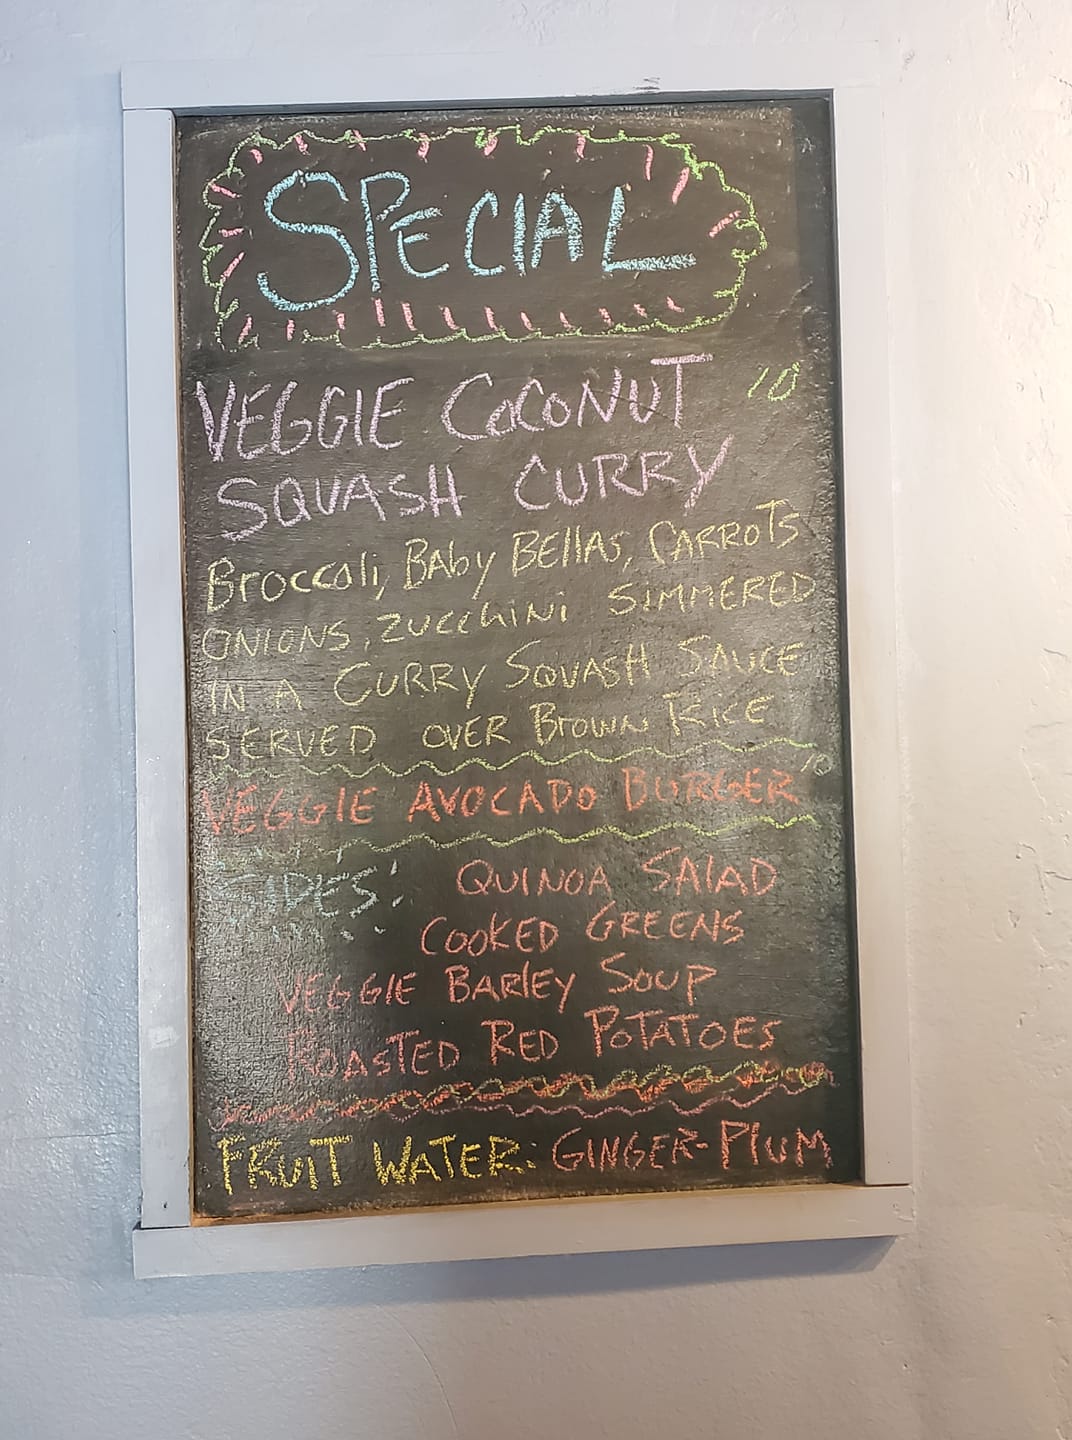 SPECIAL
VEGGIE COCONUT 10
SQUASH CURRY
Broccoli, BAby BEllAS, CARROTS
ONIONS, ZUCCHINI SIMMERED
IN A CURRY SQUASH SAUCE
SERVED OVER BROWN RICE
VEGGIE AVOCADO BURGER 10
SIDES: QUINOA SALAD
COOKED GREENS
VEGGIE BARlEY SOUP
ROASTED RED POTATOES
FRUIT WATER: GINGER-PlUM